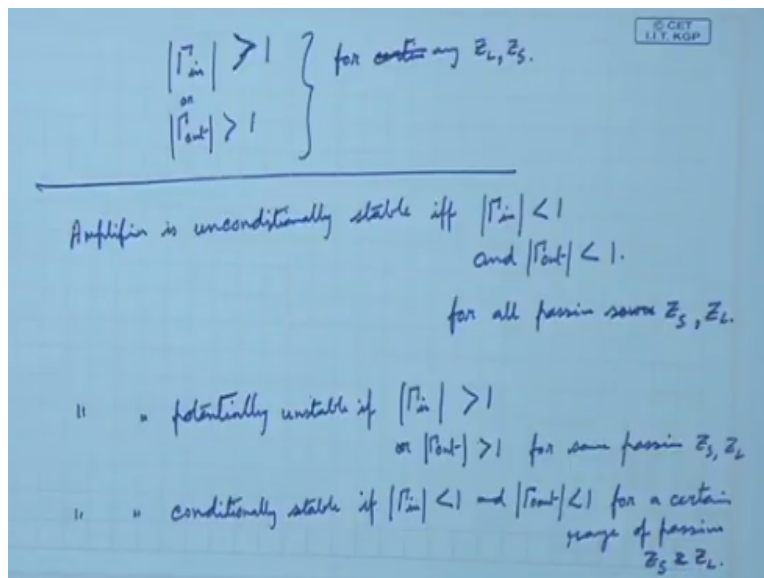 © CET
I.I.T. KGP
|Γin| > 1
or
|Γout| > 1
for any ZL, ZS.
Amplifier is unconditionally stable iff |Γin| < 1
and |Γout| < 1.
for all passive source ZS, ZL.
" " potentially unstable if |Γin| > 1
or |Γout| > 1 for some passive ZS, ZL
" " conditionally stable if |Γin| < 1 and |Γout| < 1 for a certain
range of passive
ZS & ZL.